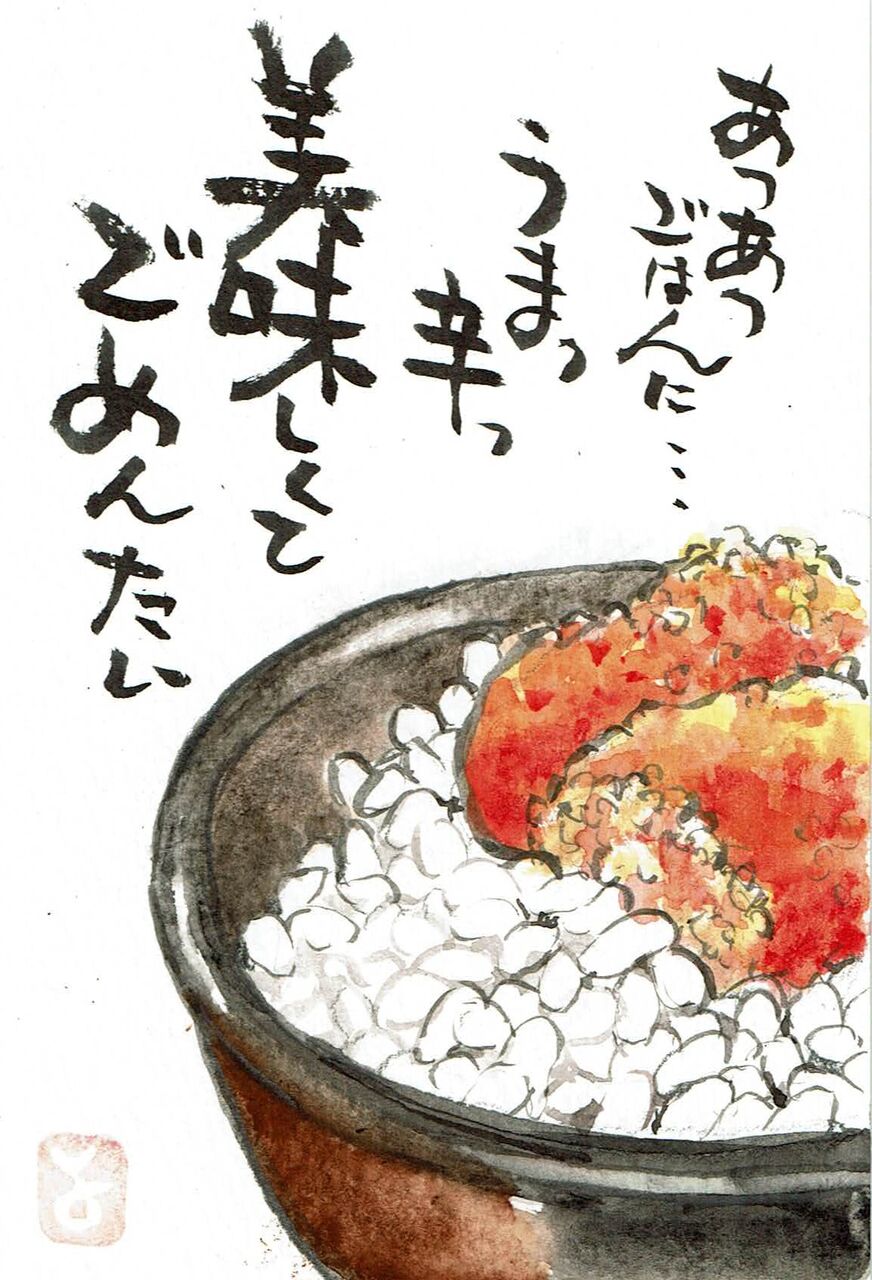 あつあつ
ごはんに……
うまっ
辛っ
美味しくて
ごめんたい